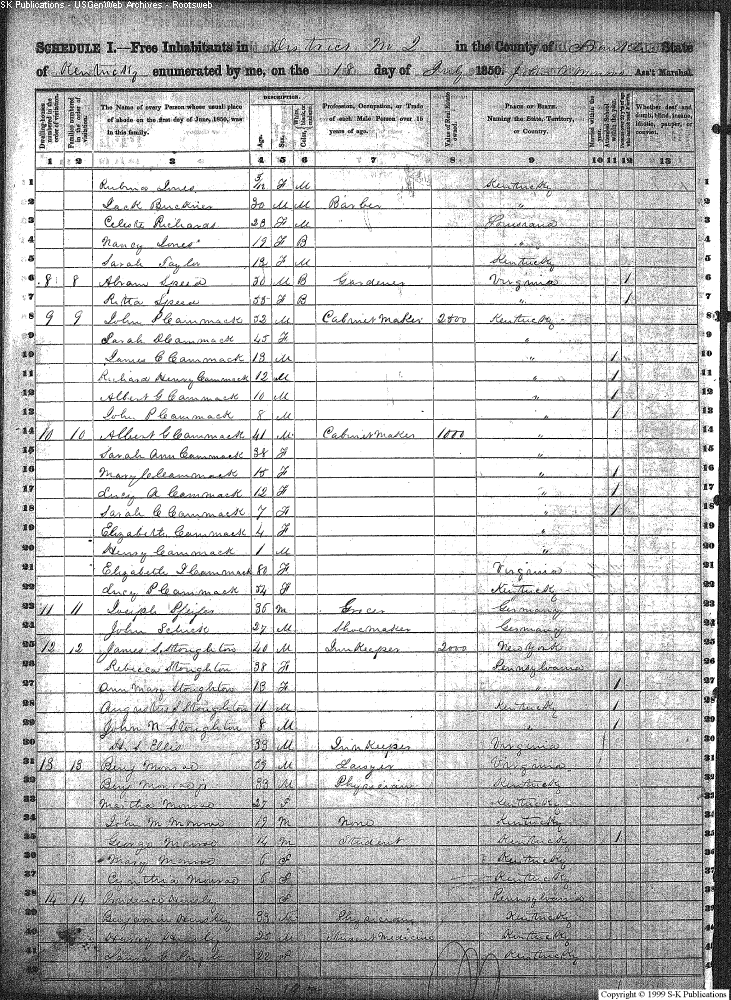 SK Publications - USGenWeb Archives - Rootsweb
SCHEDULE I.—Free Inhabitants in District No 2 in the County of State
of Kentucky enumerated by me, on the 18 day of July 1850. Ass't Marshal.
Dwelling-houses numbered in the order of visitation. Families numbered in the order of visitation. The Name of every Person whose usual place of abode on the first day of June, 1850, was in this family. DESCRIPTION. Age. Sex. White, black, or mulatto. Profession, Occupation, or Trade of each Male Person over 15 years of age. Value of Real Estate owned. PLACE OF BIRTH. Naming the State, Territory, or Country. Married within the year. Attended School within the year. Whether deaf and dumb, blind, insane, idiotic, pauper, or convict.
1 2 3 4 5 6 7 8 9 10 11 12 13
1 F M Kentucky 1
2 Jack 30 M M Barber " 2
3 Celeste Richards 28 F M Louisiana 3
4 Nancy Jones 19 F B " 4
5 Sarah Taylor 19 F M Kentucky 5
6 8 8 Abram Speed 50 M B Gardener Virginia / 6
7 Speed 55 F B " / 7
8 9 9 John P Cammack 52 M Cabinet Maker 2500 Kentucky 8
9 Sarah Cammack 45 F " 9
10 James C Cammack 19 M " / 10
11 Richard Henry Cammack 12 M " / 11
12 Albert G Cammack 10 M " / 12
13 John P Cammack 8 M " / 13
14 10 10 Albert G Cammack 41 M Cabinet Maker 1000 " 14
15 Sarah Ann Cammack 38 F 15
16 Mary Cammack 15 F " / 16
17 Lucy A Cammack 12 F " / 17
18 Sarah C Cammack 7 F " / 18
19 Elizabeth Cammack 4 F " 19
20 Henry Cammack 1 M " 20
21 Elizabeth Cammack 80 F Virginia 21
22 Lucy P Cammack 54 F Kentucky 22
23 11 11 Joseph 36 M Grocer Germany 23
24 John 27 M Shoemaker Germany 24
25 12 12 James S Stoughton 40 M Innkeeper 2000 New York 25
26 Rebecca Stoughton 38 F Pennsylvania 26
27 Ann Mary Stoughton 13 F " / 27
28 Augustus S Stoughton 11 M Kentucky / 28
29 John N Stoughton 8 M " / 29
30 Ellis 39 M Innkeeper Virginia 30
31 13 13 Benj Monroe 59 M Lawyer Virginia 31
32 Benj Monroe jr 33 M Physician Kentucky 32
33 Martha Monroe 27 F Kentucky 33
34 John M Monroe 19 M None Kentucky 34
35 George Monroe 14 M Student Kentucky / 35
36 Mary Monroe 6 F Kentucky 36
37 Cynthia Monroe 6 F Kentucky 37
38 14 14 F Pennsylvania 38
39 Benjamin 33 M Physician Kentucky 39
40 20 M Student Medicine Kentucky 40
41 22 F Kentucky 41
42
Copyright © 1999 S-K Publications